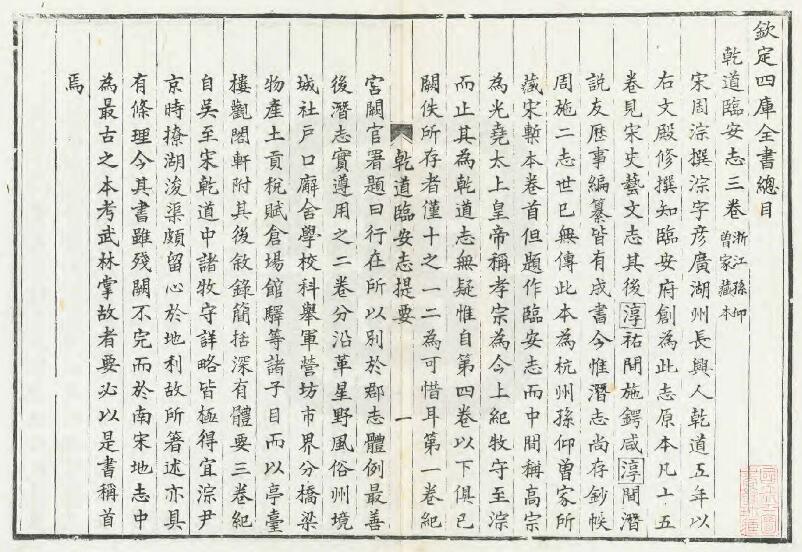 欽定四庫全書總目
乾道臨安志三卷浙江孫仰曾家藏本
宋周淙撰淙字彥廣湖州長興人乾道五年以
右文殿修撰知臨安府創為此志原本凡十五
卷見宋史藝文志其後淳祐間施鍔咸淳間潛
說友歷事編纂皆有成書今惟潛志尚存鈔帙
周施二志世已無傳此本為杭州孫仰曾家所
藏宋槧本卷首但題作臨安志而中間稱高宗
為光堯太上皇帝稱孝宗為今上紀牧守至淙
而止其為乾道志無疑惟自第四卷以下俱已
闕佚所存者僅十之一二為可惜耳第一卷紀
乾道臨安志提要 一
宮闕官署題曰行在所以別於郡志體例最善
後潛志實遵用之二卷分沿革星野風俗州境
城社戶口廨舍學校科舉軍營坊市界分橋梁
物產土貢稅賦倉場館驛等諸子目而以亭臺
樓觀閣軒附其後敘錄簡括深有體要三卷紀
自吳至宋乾道中諸牧守詳略皆極得宜淙尹
京時撩湖浚渠頗留心於地利故所著述亦具
有條理今其書雖殘闕不完而於南宋地志中
為最古之本考武林掌故者要必以是書稱首
焉